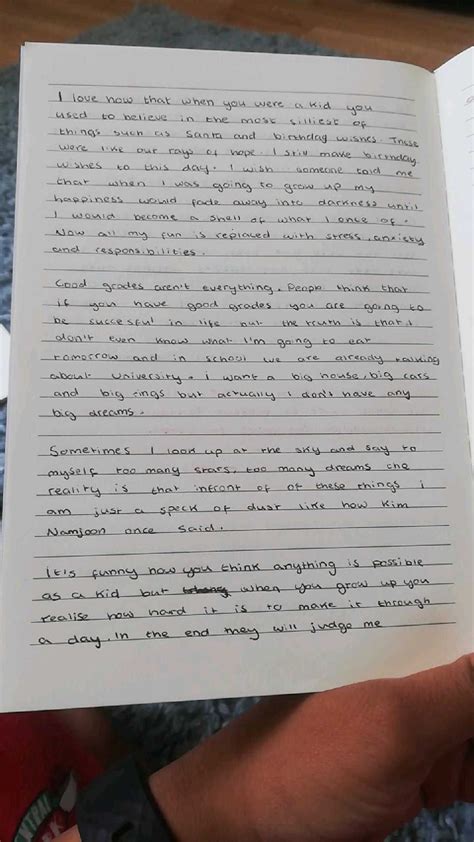 I love how that when you were a kid you
used to believe in the most silliest of
things such as Santa and birthday wishes. These
were like our rays of hope. I still make birthday
wishes to this day. I wish someone told me
that when I was going to grow up my
happiness would fade away into darkness until
I would become a shell of what I once of.
Now all my fun is replaced with stress, anxiety
and responsibilities.
Good grades aren't everything. People think that
if you have good grades you are going to
be succesful in life but the truth is that i
don't even know what I'm going to eat
tomorrow and in school we are already talking
about University. i want a big house, big cars
and big rings but actually I don't have any
big dreams.
Sometimes I look up at the sky and say to
myself too many stars, too many dreams the
reality is that infront of of these things i
am just a speck of dust like how Kim
Namjoon once said.
It's funny how you think anything is possible
as a kid but when you grow up you
realise how hard it is to make it through
a day. In the end they will judge me